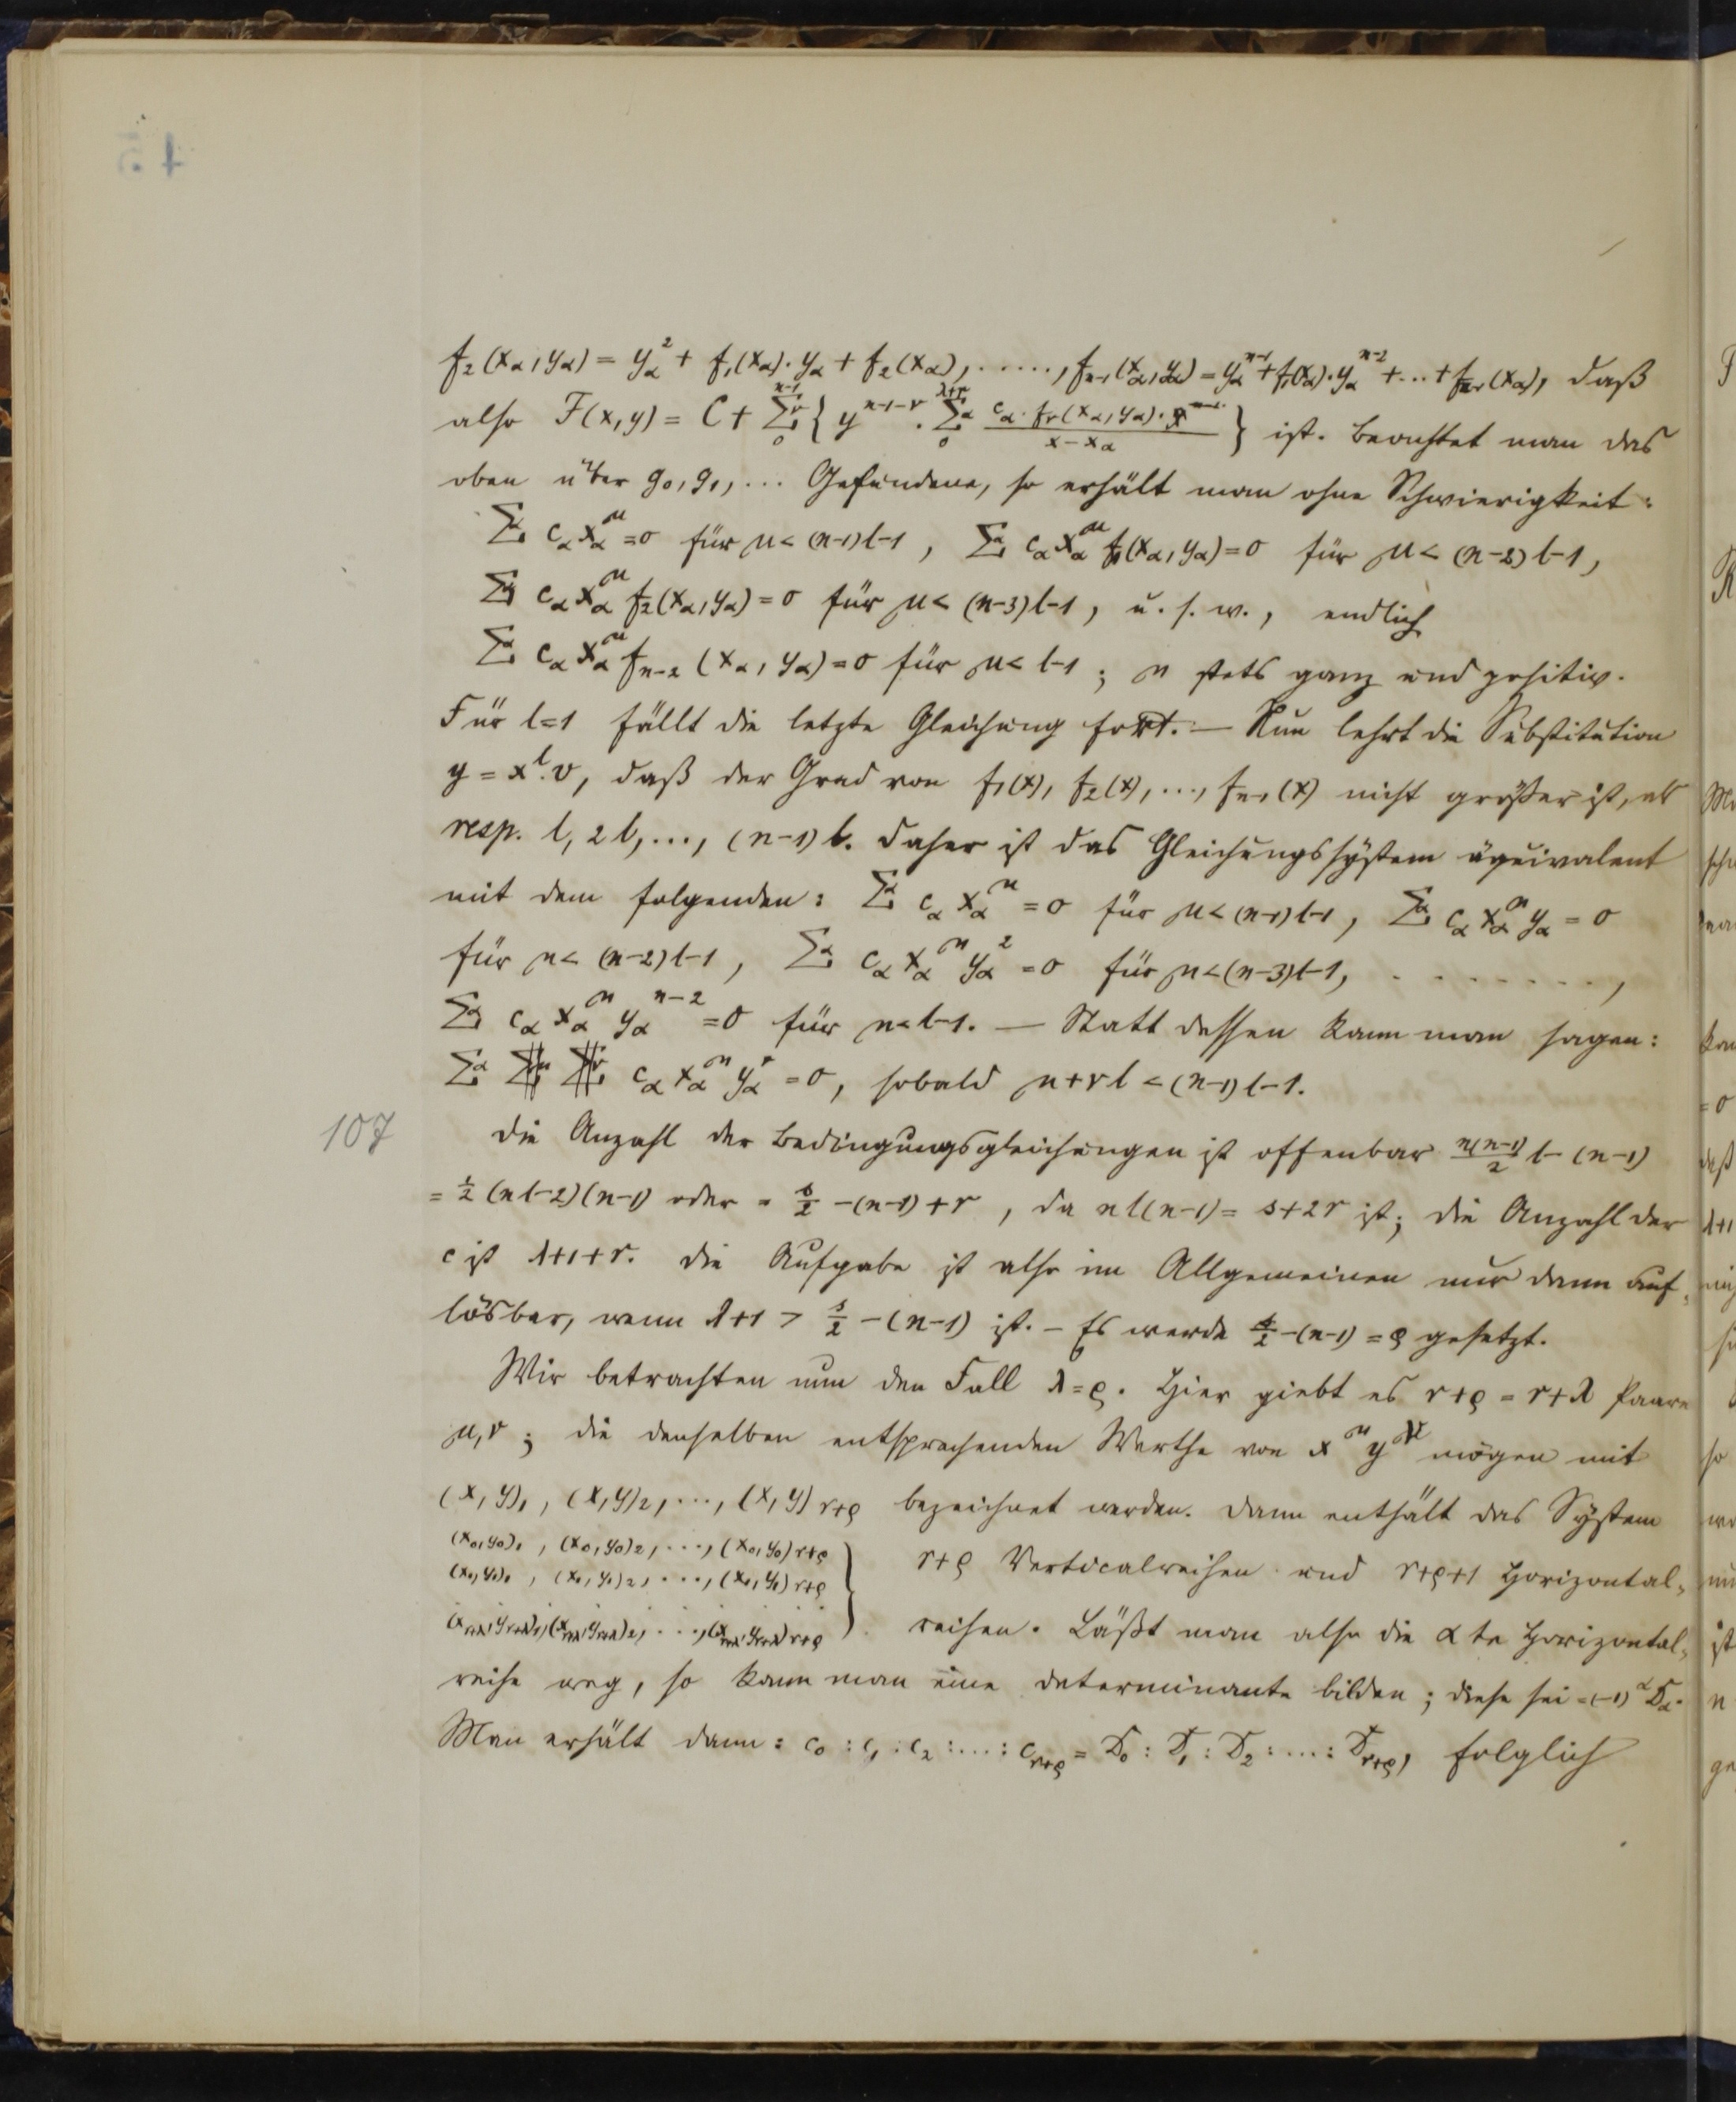 f₂(x_α, y_α) = y_α² + f₁(x_α)·y_α + f₂(x_α), ....., f_{n-1}(x_α, y_α) = y_α^{n-1} + f₁(x_α)·y_α^{n-2} + ... + f_{n-1}(x_α), daß
also F(x,y) = C + Σ^ν_0^{n-1} { y^{n-1-ν} · Σ^α_0^{λ+r} c_α·f_ν(x_α, y_α) / x-x_α } ist. Beachtet man das
oben über g₀, g₁, ... Gefundene, so erhält man ohne Schwierigkeit:
Σ^α c_α x_α^μ = 0 für μ < (n-1)l-1, Σ^α c_α x_α^μ f₁(x_α, y_α) = 0 für μ < (n-2)l-1,
Σ^α c_α x_α^μ f₂(x_α, y_α) = 0 für μ < (n-3)l-1, u. s. w., endlich
Σ^α c_α x_α^μ f_{n-2}(x_α, y_α) = 0 für μ < l-1; μ stets ganz und positiv.
Für l=1 fällt die letzte Gleichung fort. — Nun lehrt die Substitution
y = x^l·v, daß der Grad von f₁(x), f₂(x), ..., f_{n-1}(x) nicht größer ist, als
resp. l, 2l, ..., (n-1)l. Daher ist das Gleichungssystem äquivalent
mit dem folgenden: Σ^α c_α x_α^μ = 0 für μ < (n-1)l-1, Σ^α c_α x_α^μ y_α = 0
für μ < (n-2)l-1, Σ^α c_α x_α^μ y_α² = 0 für μ < (n-3)l-1, . . . . . . . . ,
Σ^α c_α x_α^μ y_α^{n-2} = 0 für μ < l-1. — Statt dessen kann man sagen:
Σ^α c_α x_α^μ y_α^ν = 0, sobald μ+νl < (n-1)l-1.
107
Die Anzahl der Bedingungsgleichungen ist offenbar n(n-1)/2 l - (n-1)
= ½(nl-2)(n-1) oder = s/2 - (n-1) + r, da nl(n-1) = s+2r ist; die Anzahl der
c ist λ+1+r. Die Aufgabe ist also im Allgemeinen nur dann auf-
lösbar, wenn λ+1 > s/2 - (n-1) ist. — Es werde s/2 - (n-1) = ϱ gesetzt.
Wir betrachten nun den Fall λ=ϱ. Hier giebt es r+ϱ = r+λ Paare
μ, ν; die denselben entsprechenden Werthe von x^μ y^ν mögen mit
(x,y)₁, (x,y)₂, ..., (x,y)_{r+ϱ} bezeichnet werden. Dann enthält das System
(x₀,y₀)₁, (x₀,y₀)₂, ..., (x₀,y₀)_{r+ϱ}
(x₁,y₁)₁, (x₁,y₁)₂, ..., (x₁,y₁)_{r+ϱ}
(x_{r+λ},y_{r+λ})₁, (x_{r+λ},y_{r+λ})₂, ..., (x_{r+λ},y_{r+λ})_{r+ϱ} }
r+ϱ Verticalreihen und r+ϱ+1 Horizontal-
reihen. Läßt man also die α te Horizontal-
reihe weg, so kann man eine Determinante bilden; diese sei = (-1)^α D_α.
Man erhält dann: c₀ : c₁ : c₂ : ... : c_{r+ϱ} = D₀ : D₁ : D₂ : ... : D_{r+ϱ}, folglich